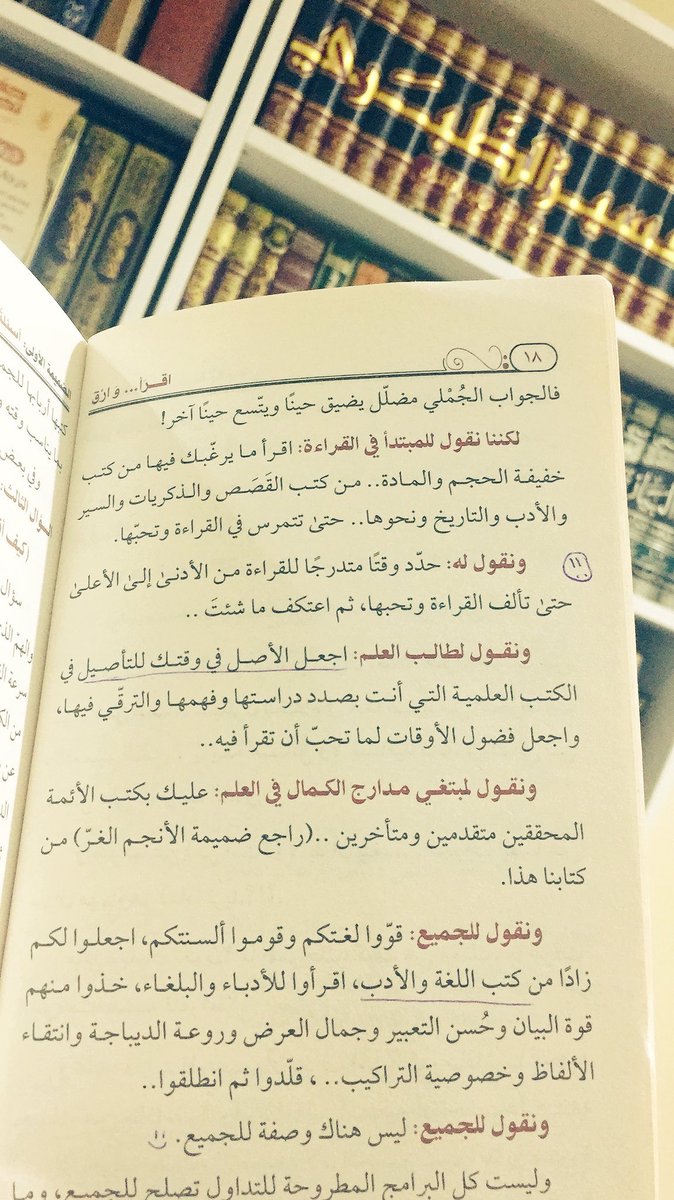 تفسير الطبري
١٨
اقرأ... وارق
فالجواب الجُمْلي مضلّل يضيق حينًا ويتّسع حينًا آخر!
لكننا نقول للمبتدأ في القراءة: اقرأ ما يرغّبك فيها من كتب
خفيفة الحجم والمادة.. من كتب القَصَص والذكريات والسير
والأدب والتاريخ ونحوها.. حتىٰ تتمرس في القراءة وتحبّها.
ونقول له: حدّد وقتًا متدرجًا للقراءة من الأدنىٰ إلىٰ الأعلىٰ
حتىٰ تألف القراءة وتحبها، ثم اعتكف ما شئتَ ..
ونقول لطالب العلم: اجعل الأصل في وقتك للتأصيل في
الكتب العلمية التي أنت بصدد دراستها وفهمها والترقّي فيها،
واجعل فضول الأوقات لما تحبّ أن تقرأ فيه..
ونقول لمبتغي مدارج الكمال في العلم: عليك بكتب الأئمة
المحققين متقدمين ومتأخرين ..(راجع ضميمة الأنجم الغرّ) من
كتابنا هذا.
ونقول للجميع: قوّوا لغتكم وقوموا ألسنتكم، اجعلوا لكم
زادًا من كتب اللغة والأدب، اقرأوا للأدباء والبلغاء، خذوا منهم
قوة البيان وحُسن التعبير وجمال العرض وروعة الديباجة وانتقاء
الألفاظ وخصوصية التراكيب.. ، قلّدوا ثم انطلقوا..
ونقول للجميع: ليس هناك وصفة للجميع.
وليست كل البرامج المطروحة للتداول تصلح للجميع، وما